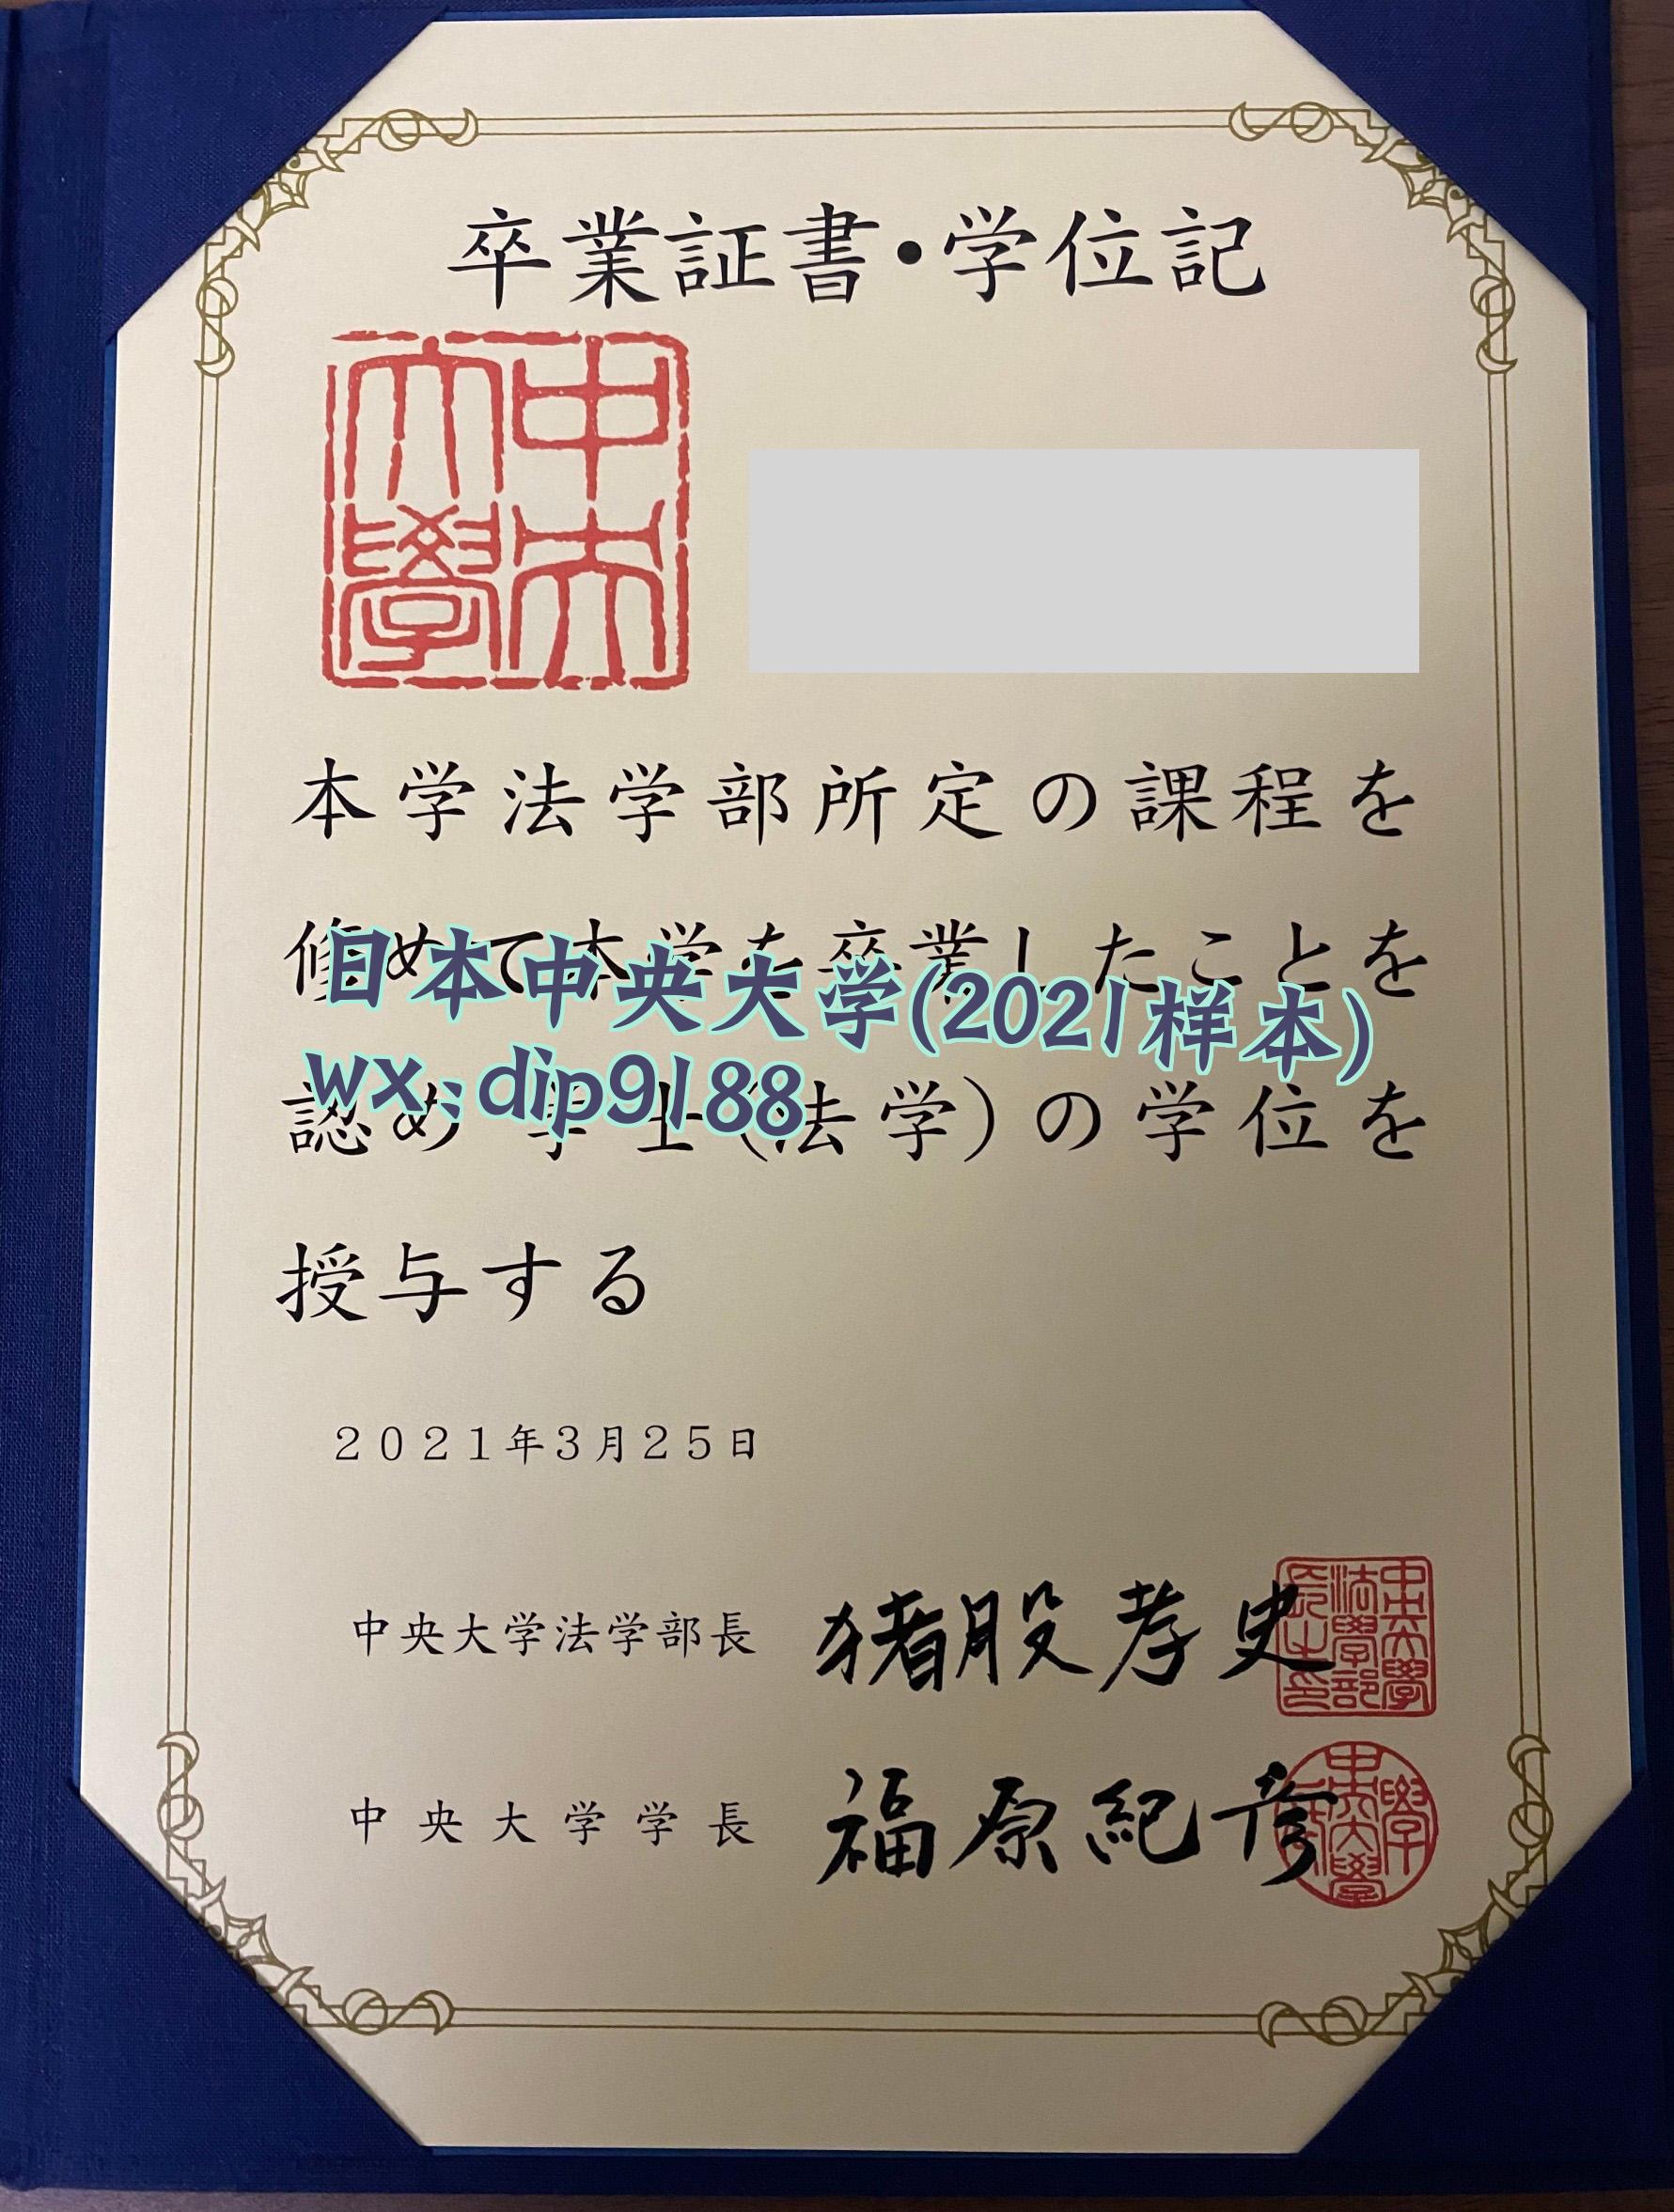 卒業証書・学位記
中央大學
本学法学部所定の課程を
修めて本学を卒業したことを
日本中央大学(2021样本)
wx:dip9188
認め学士(法学)の学位を
授与する
2021年3月25日
中央大学法学部長 猪股孝史
中央大學法學部長之印
中央大学学長 福原紀彦